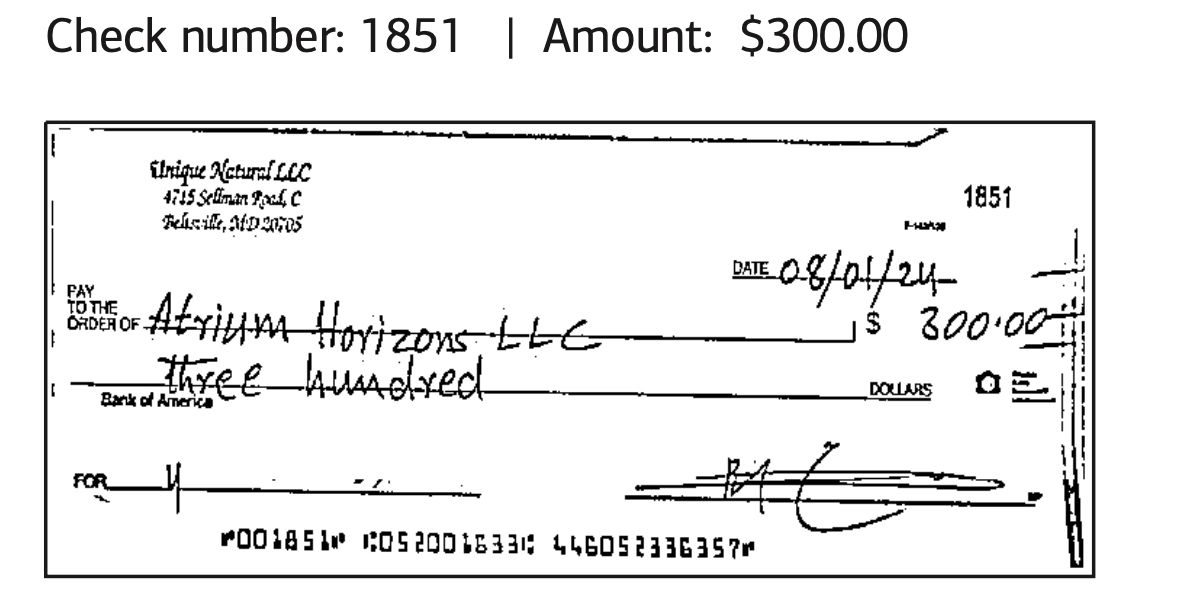 Check number: 1851 | Amount: $300.00
Unique Natural LLC
4715 Sellman Road, C
Beltsville, MD 20705
1851
DATE 08/01/24
PAY
TO THE
ORDER OF Atrium Horizons LLC $ 300.00
three hundred DOLLARS
Bank of America
FOR
⑈001851⑈ ⑆052001633⑆ 446052336357⑈